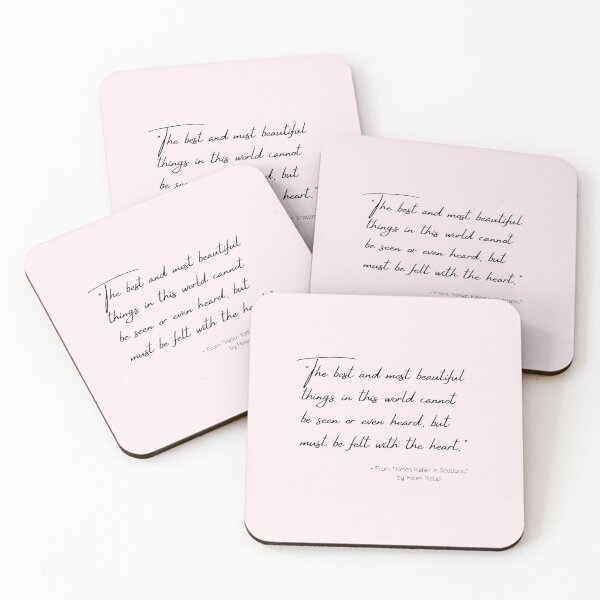 "The best and most beautiful
things in this world cannot
be seen
heart."
"The best and most beautiful
things in this world cannot
be seen or even heard, but
must be felt with the heart."
- From "Helen Keller in Scotland"
"The best and most beautiful
things in this world cannot
be seen or even heard, but
must be felt with the
- From "Helen
by Helen
"The best and most beautiful
things in this world cannot
be seen or even heard, but
must be felt with the heart."
- From "Helen Keller in Scotland"
by Helen Keller